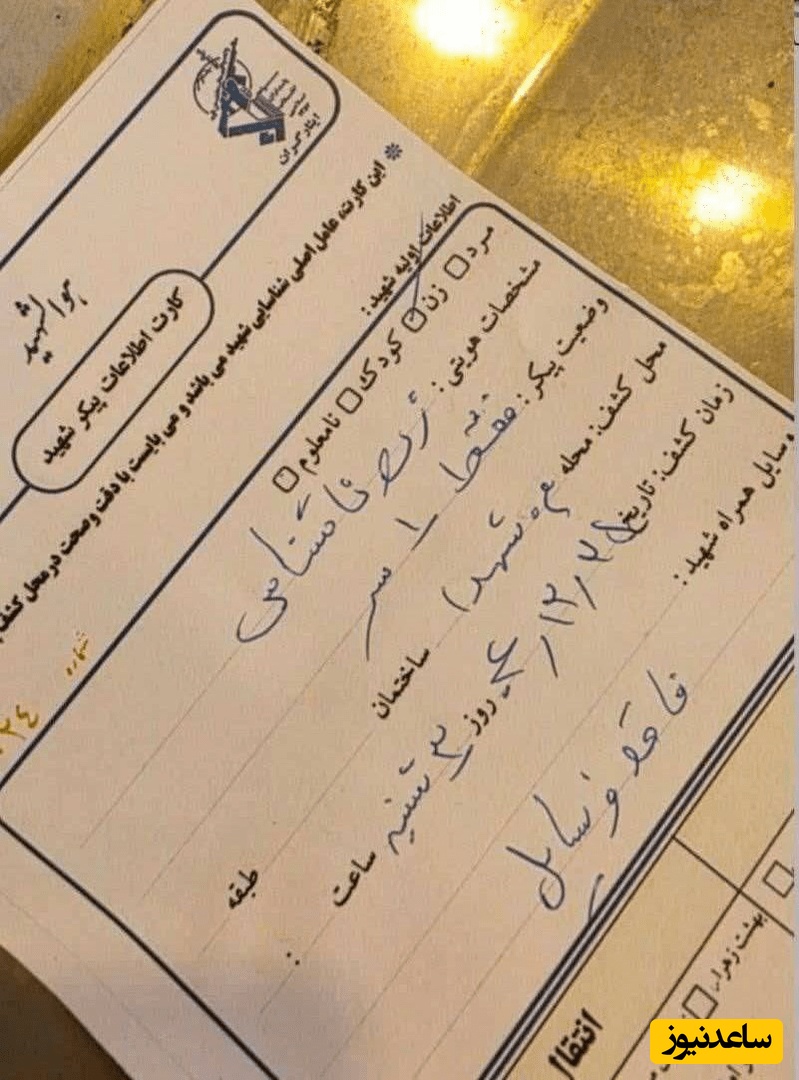 ایثارگران
هوالشهید
کارت اطلاعات پیکر شهید
* این کارت، عامل اصلی شناسایی شهید می باشد و می بایست با دقت و صحت در محل کشف
شماره
۰۲۴
اطلاعات اولیه شهید:
مرد زن کودک نامعلوم
مشخصات هویتی: زن ناشناس
وضعیت پیکر: فقط ۱ سر
محل کشف: محله شهدا ساختمان طبقه
زمان کشف: تاریخ ۱۲/۲۵/ روز ۳ شنبه ساعت :
وسایل همراه شهید:
فاقد وسایل
انتقال
بهشت زهرا
ساعدنیوز